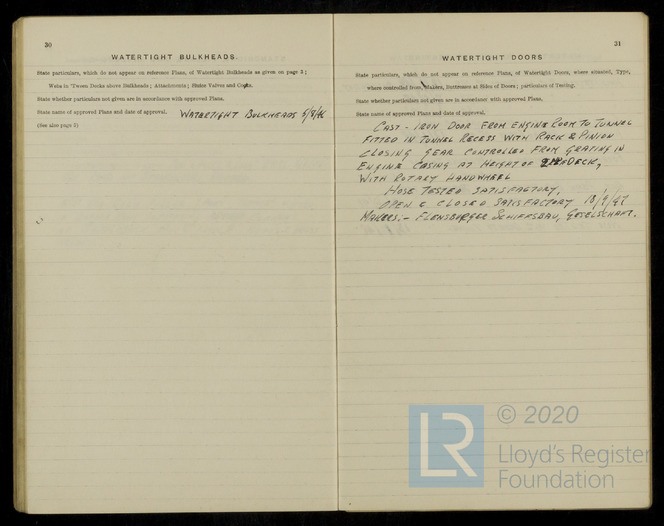 30
WATERTIGHT BULKHEADS.
State particulars, which do not appear on reference Plans, of Watertight Bulkheads as given on page 2;
Webs in 'Tween Decks above Bulkheads; Attachments; Sluice Valves and Cocks.
State whether particulars not given are in accordance with approved Plans.
State name of approved Plans and date of approval. WATERTIGHT BULKHEADS 5/8/46
(See also page 2)
31
WATERTIGHT DOORS
State particulars, which do not appear on reference Plans, of Watertight Doors, where situated, Type,
where controlled from, Makers, Buttresses at Sides of Doors; particulars of Testing.
State whether particulars not given are in accordance with approved Plans.
State name of approved Plans and date of approval.
CAST-IRON DOOR FROM ENGINE ROOM TO TUNNEL
FITTED IN TUNNEL RECESS WITH RACK & PINION
CLOSING GEAR CONTROLLED FROM GRATING IN
ENGINE CASING AT HEIGHT OF DECK,
WITH ROTARY HANDWHEEL
HOSE TESTED SATISFACTORY,
OPEN & CLOSED SATISFACTORY 18/9/47
MAKERS:- FLENSBURGER SCHIFFSBAU, GESELSCHAFT.
LR
© 2020
Lloyd's Register
Foundation